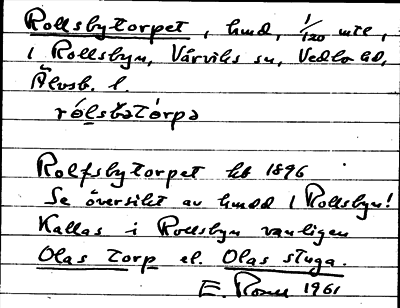 Rollsbytorpet, hmd, 1/120 mtl,
i Rollsbyn, Vårviks sn, Vedbo hd,
Älvsb. l.
Rolfsbytorpet kb 1896
Se översikt av hmdd i Rollsbyn!
Kallas i Rollsbyn vanligen
Olas torp el. Olas stuga.
E. 1961